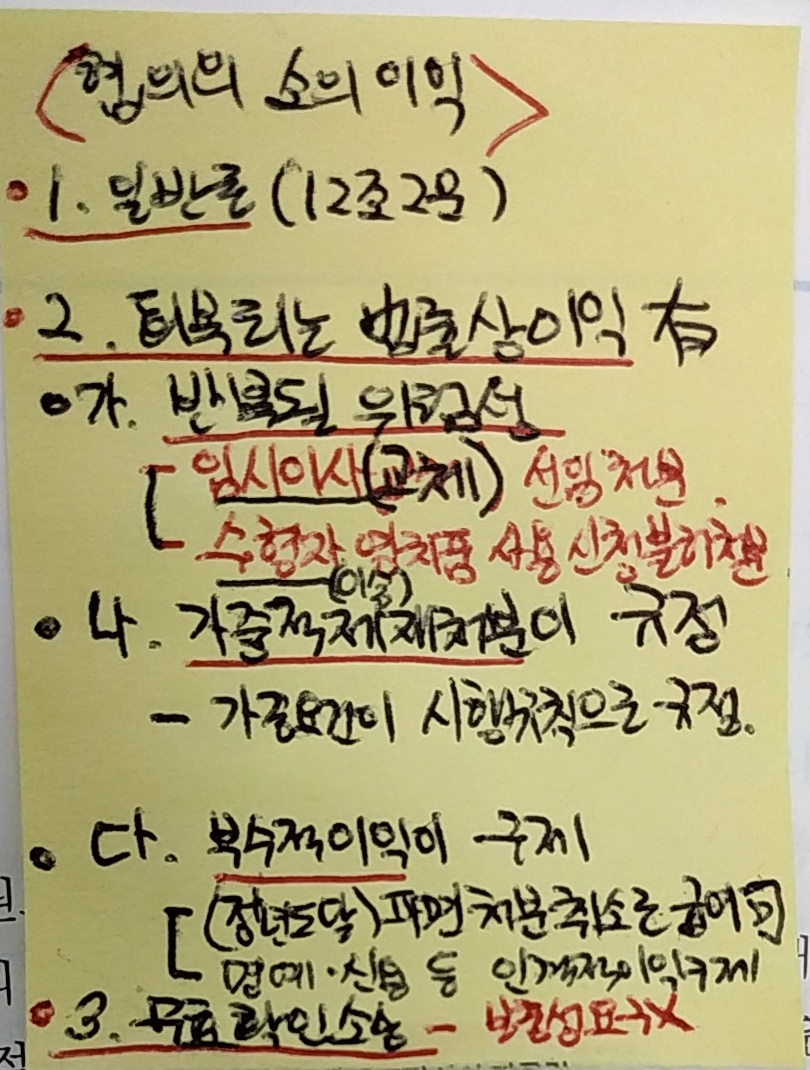 <협의의 소의 이익>
• 1. 일반론 (12조2문)
• 2. 회복되는 법률상이익 有
• 가. 반복될 위험성
임시이사(교체) 선임처분.
수형자 영치품 사용 신청불허처분
(이송)
• 나. 가중적제재처분이 규정
- 가중요건이 시행규칙으로 규정.
• 다. 부수적이익이 구제
(정년도달) 파면처분취소로 급여
명예·신용 등 인격적이익구제
• 3. 무효확인소송 - 보충성요구X